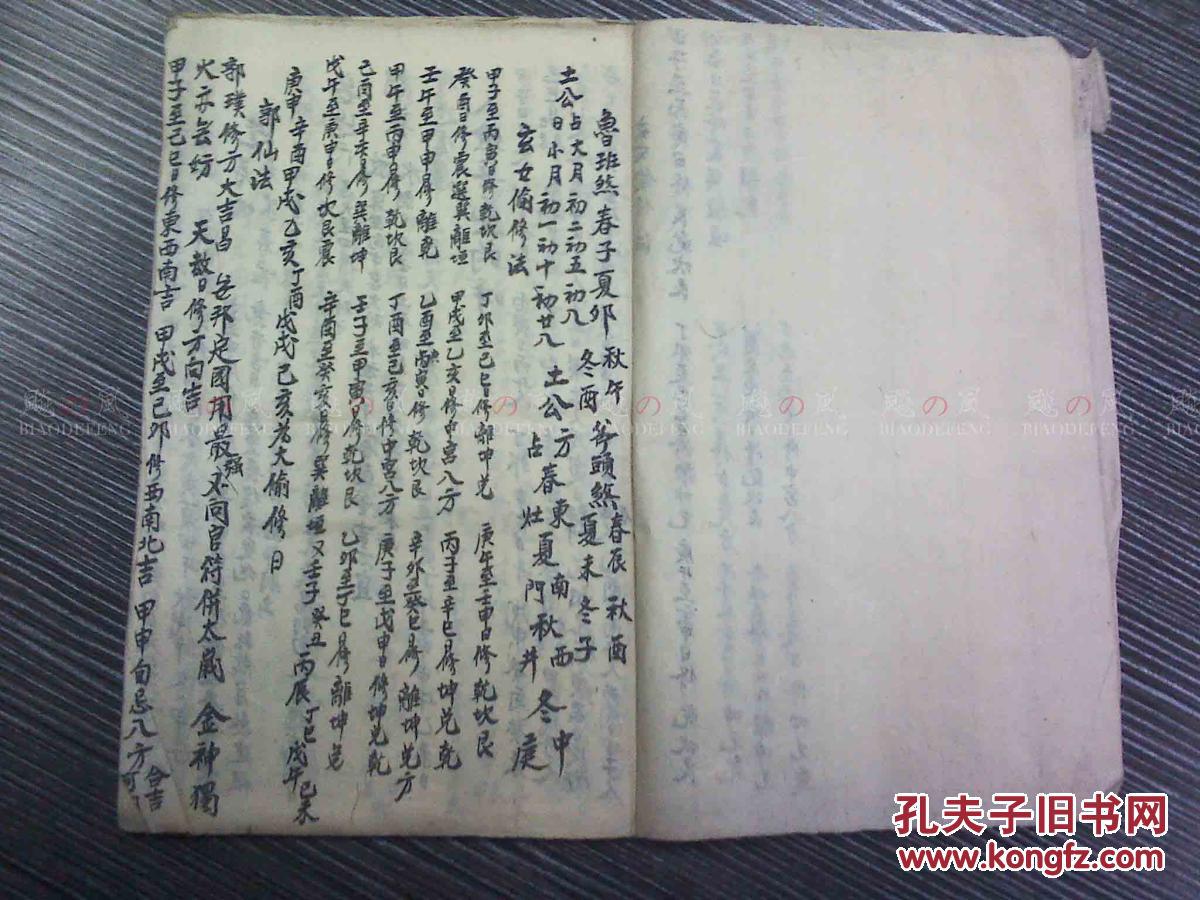 魯班煞春子夏卯秋午冬酉 斧頭煞春辰秋酉夏未冬子
土公占大月初二初五初八 土公方春東南秋西冬中
土公日小月初一初十初廿八 占灶夏門秋井庭
玄女偷修法
甲子至丙寅日修乾坎艮 丁卯至己巳日修離坤兑 庚午至壬申日修乾坎艮
癸酉日修震選巽離垣 甲戌至乙亥日修中宫八方 丙子至辛巳日修坤兑乾
壬午至甲申日修離乾 乙酉至丙寅日修乾坎艮 辛卯至癸巳日修離坤兑方
甲午至丙申日修乾坎艮 丁酉至己亥日修中宫八方 庚子至戊申日修坤兑乾
己酉至辛亥日修巽離坤 壬子至甲寅日修乾坎艮 乙卯至丁巳日修離坤兑
戊午至庚申日修坎艮震 辛酉至癸亥日修巽離垣 又壬子 癸丑 丙辰 丁巳 戊午 己未
庚申 辛酉 甲戌 乙亥 丁酉 戊戌 己亥者大偷修日
郭仙法
郭璞修方大吉昌 安邦定國用最强 不向官符併太歲 金神獨
火亦無妨 天赦日修方向吉
甲子至己巳日修東西南吉 甲戌至己卯修西南北吉 甲申旬忌八方 合吉可
飚の风
BIAODEFENG
飚の风
BIAODEFENG
飚の风
BIAODEFENG
孔夫子旧书网
www.kongfz.com